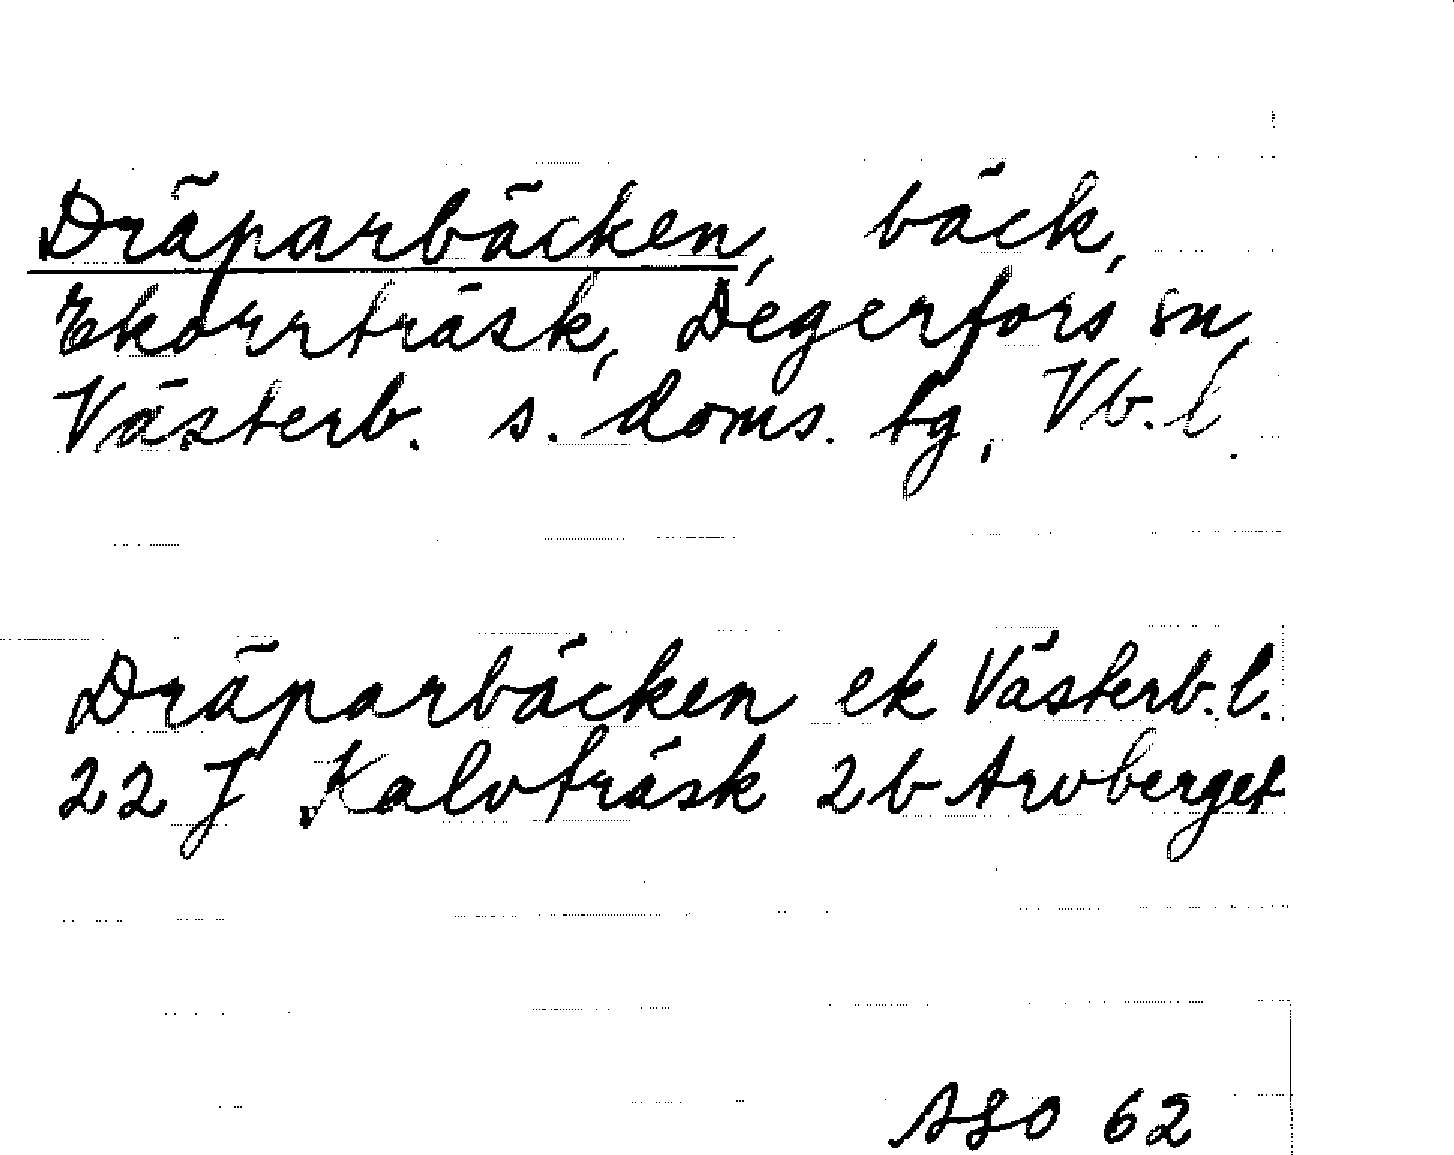 Dräparbäcken, bäck,
Ekorrträsk, Degerfors sn,
Västerb. s. doms. tg, Vb. l.
Dräparbäcken ek Västerb. l.
22 J Kalvträsk 2b Arvberget
ASO 62